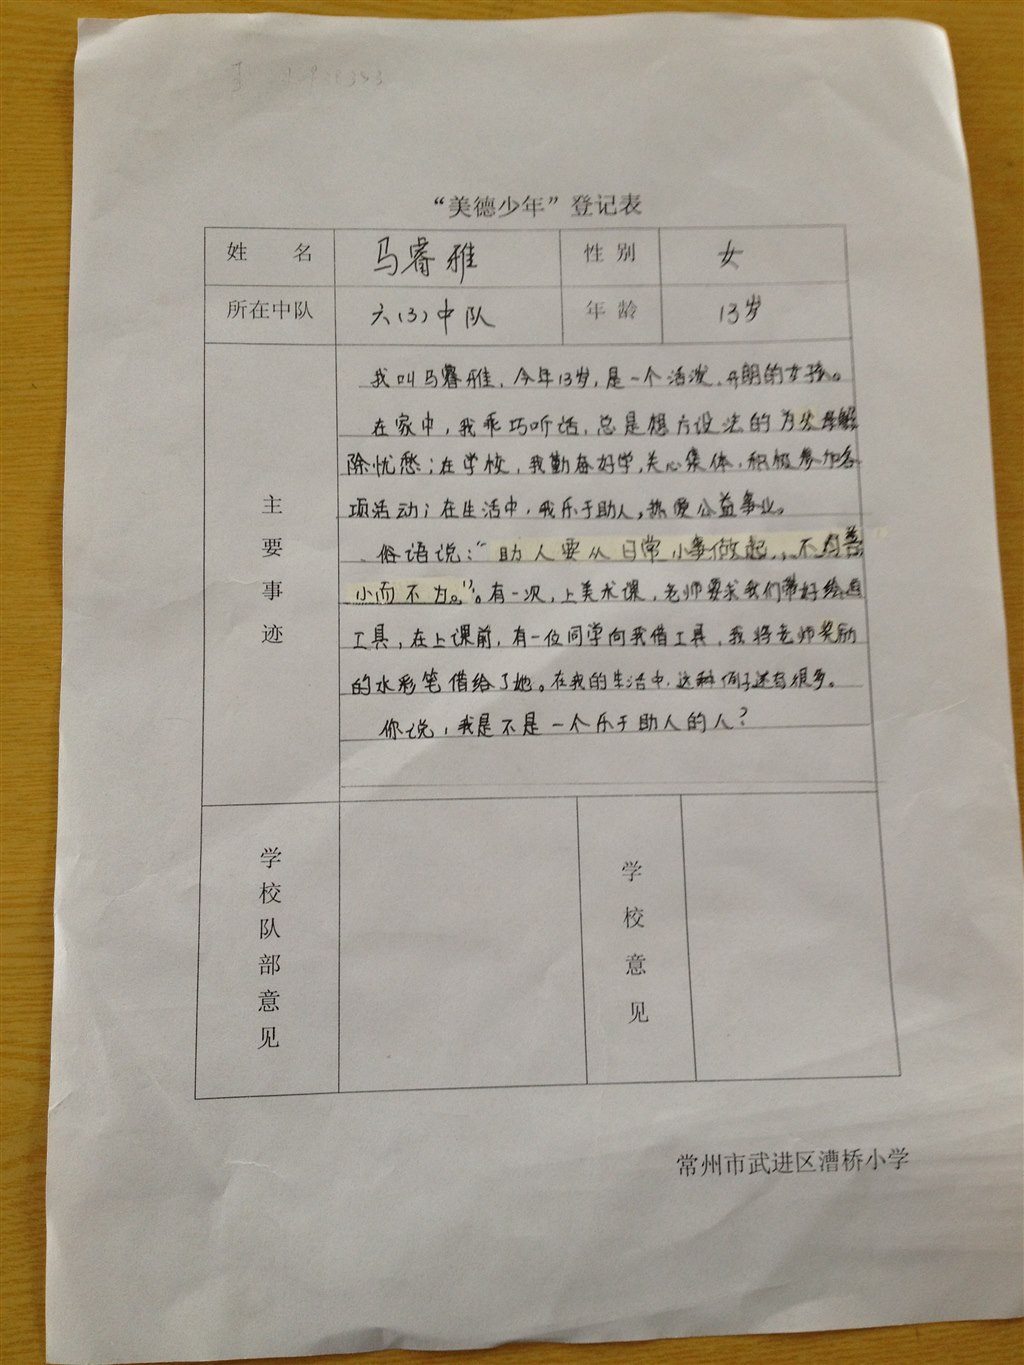 “美德少年”登记表
姓 名 马睿雅 性 别 女
所在中队 六(3)中队 年 龄 13岁
主要事迹
我叫马睿雅，今年13岁，是一个活泼、开朗的女孩。
在家中，我乖巧听话，总是想方设法的为父母解
除忧愁；在学校，我勤奋好学，关心集体，积极参加各
项活动；在生活中，我乐于助人，热爱公益事业。
俗语说：“助人要从日常小事做起，不因善
小而不为。”。有一次，上美术课，老师要求我们带好绘画
工具，在上课前，有一位同学向我借工具，我将老师奖励
的水彩笔借给了她。在我的生活中，这种例子还有很多。
你说，我是不是一个乐于助人的人？
学校队部意见
学校意见
常州市武进区漕桥小学